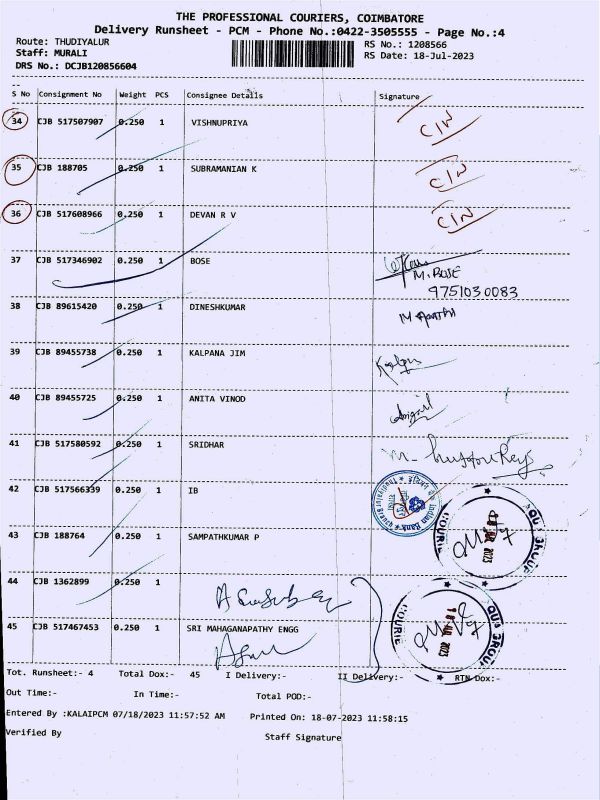 THE PROFESSIONAL COURIERS, COIMBATORE
Delivery Runsheet - PCM - Phone No.:0422-3505555 - Page No.:4
Route: THUDIYALUR RS No.: 1208566
Staff: MURALI RS Date: 18-Jul-2023
DRS No.: DCJB120856604
S No Consignment No Weight PCS Consignee Details Signature
34 CJB 517507907 0.250 1 VISHNUPRIYA CIN
35 CJB 188705 0.250 1 SUBRAMANIAN K CIN
36 CJB 517608966 0.250 1 DEVAN R V CIN
37 CJB 517346902 0.250 1 BOSE M. BOSE
9751030083
38 CJB 89615420 0.250 1 DINESHKUMAR
39 CJB 89455738 0.250 1 KALPANA JIM
40 CJB 89455725 0.250 1 ANITA VINOD
41 CJB 517580592 0.250 1 SRIDHAR
42 CJB 517566339 0.250 1 IB Indian Bank
43 CJB 188764 0.250 1 SAMPATHKUMAR P
44 CJB 1362899 0.250 1
45 CJB 517467453 0.250 1 SRI MAHAGANAPATHY ENGG
Tot. Runsheet:- 4 Total Dox:- 45 I Delivery:- II Delivery:- RTN Dox:-
Out Time:- In Time:- Total POD:-
Entered By :KALAIPCM 07/18/2023 11:57:52 AM Printed On: 18-07-2023 11:58:15
Verified By Staff Signature